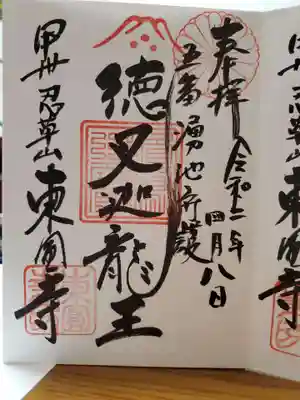 奉拝　令和二年
四月八日
五番　湧池守護
徳叉迦龍王
甲州忍草山　東圓寺
東圓寺